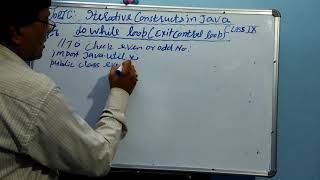 Topic: Iterative Constructs in Java
do while loop (Exit control loop) Class IX
// To check even or odd No.
import java.util.*;
public class